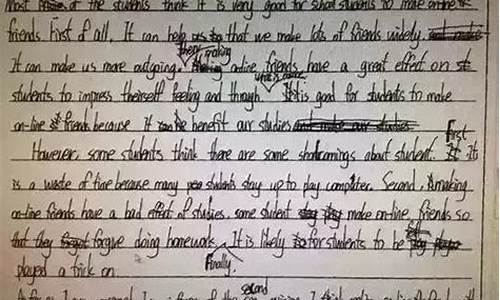 Most of the students think it is very good for school students to make on-line
friends. First of all, It can help us that we make lots of friends widely.
It can make us more outgoing. Then, making online friends have a great effect on
students to impress theirself feeling and through. What's more, It is good for students to make
on-line friends because it can be benefit our studies
However, some students think there are some shortcomings about student. first It
is a waste of time because many students stay up to play computer. Second, making
on-line friends have a bad effect of studies. some student make on-line friends so
that they forgive doing homework. Finally, It is likely for students to be
played a trick on.
second